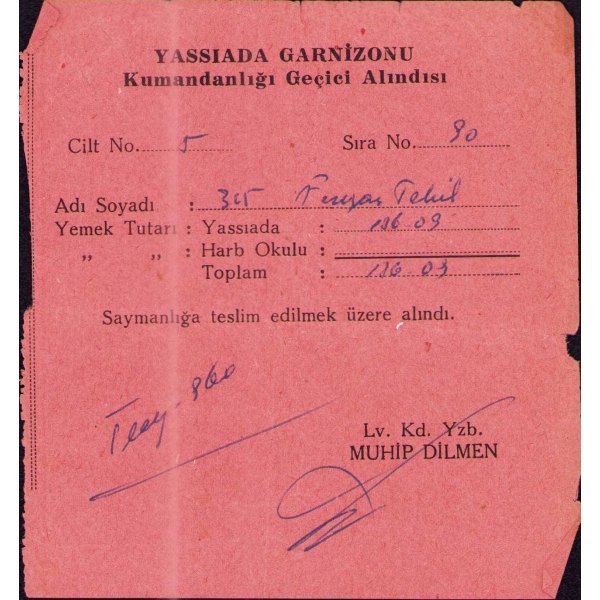 YASSIADA GARNİZONU
Kumandanlığı Geçici Alındısı
Cilt No. 5 Sıra No. 90
Adı Soyadı : 315
Yemek Tutarı : Yassıada : 186 09
„ „ : Harb Okulu :
Toplam : 186 09
Saymanlığa teslim edilmek üzere alındı.
960
Lv. Kd. Yzb.
MUHİP DİLMEN